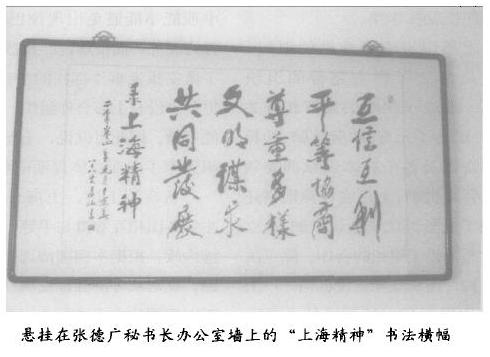 互信互利
平等協商
尊重多樣
文明謀求
共同發展
录上海精神
二零零四年元月
悬挂在张德广秘书长办公室墙上的“上海精神”书法横幅